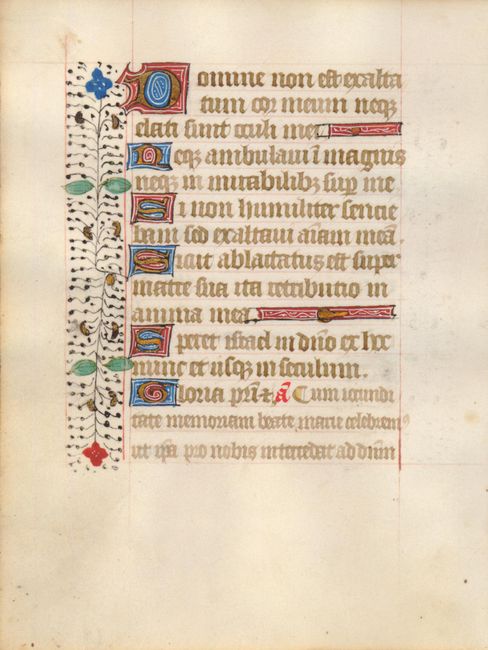 Domine non est exalta
tum cor meum neqꝫ
elati sunt oculi mei
Neqꝫ ambulaui ī magnis
neqꝫ in mirabilibꝫ sup me
Si non humiliter sencie
bam sed exaltaui aīam meā.
Sicut ablactatus est super
matre sua ita retributio in
anima mea
Speret israel in dn̄o ex hoc
nunc et usqꝫ in seculum.
Gloria pr̄i ⁊ ā Cum iocundi
tate memoriam beate marie celebremꝰ
ut ip̄a pro nobis intercedat ad dn̄m